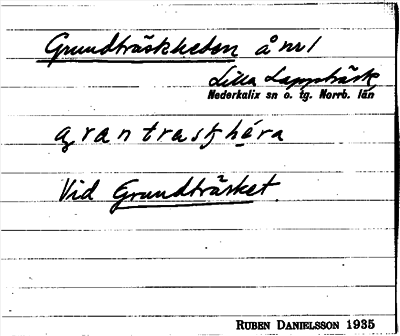 Grundträskheden å nr 1
Lilla Lappträsk
Nederkalix sn o. tg. Norrb. län
Vid Grundträsket.
RUBEN DANIELSSON 1935